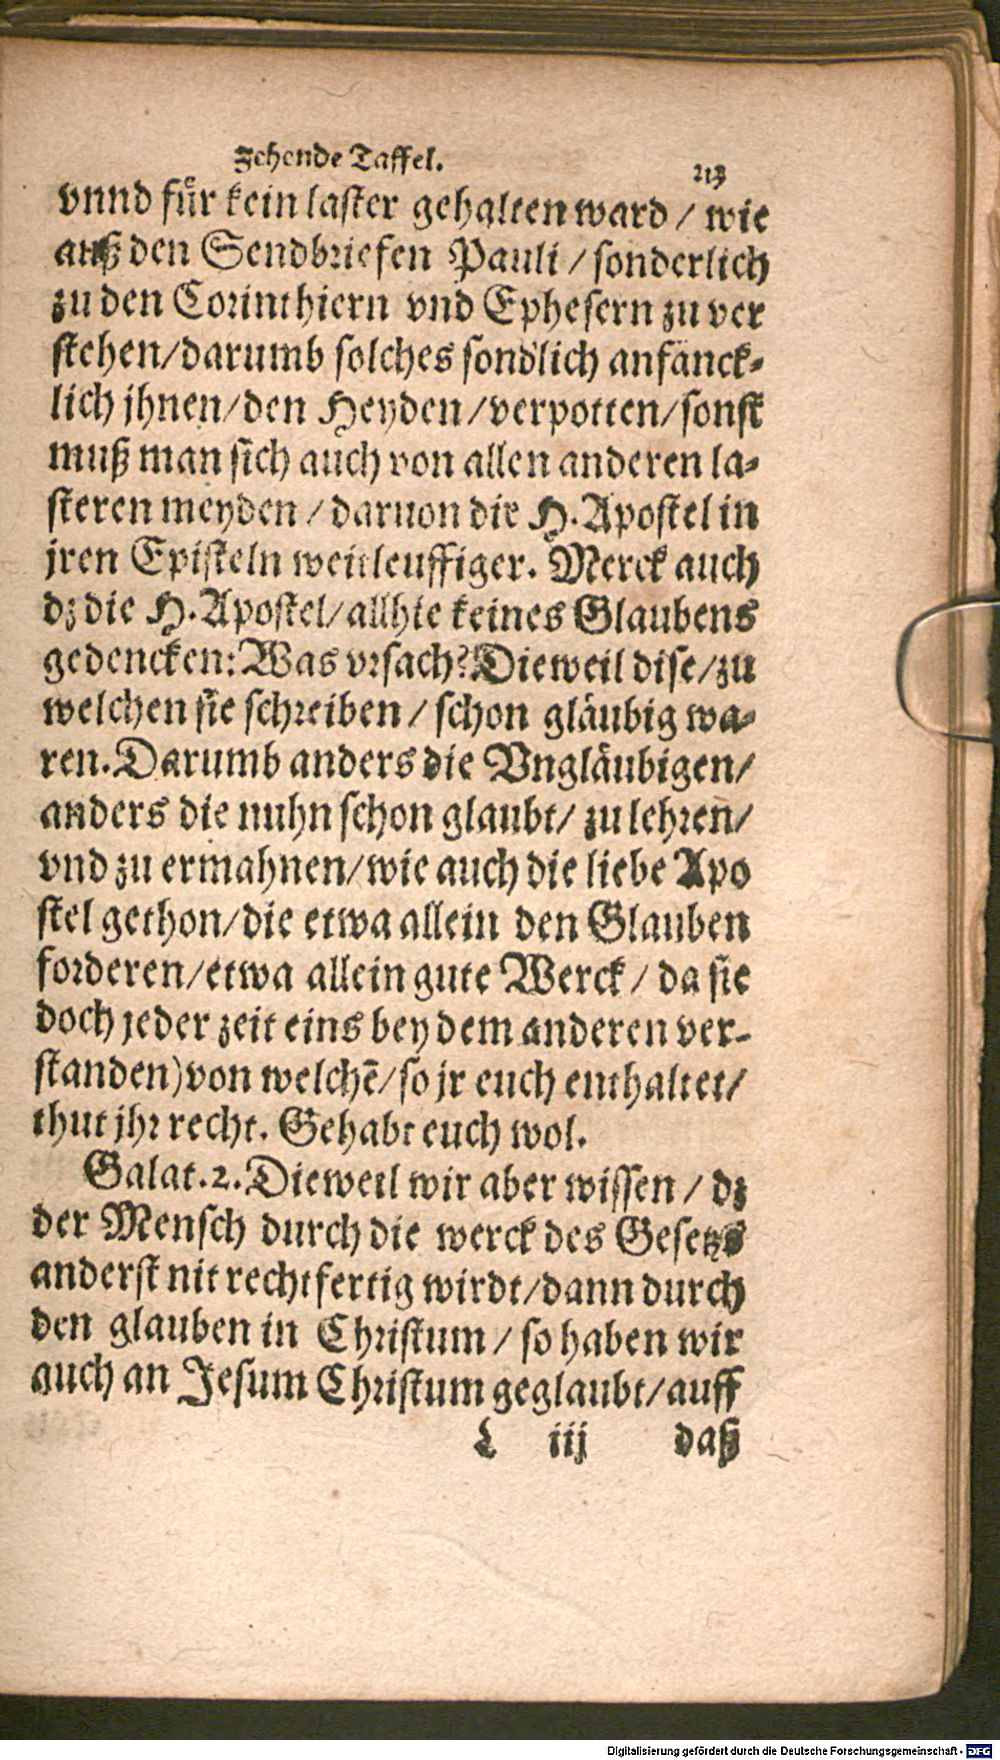 Zehende Taffel. 213
vnnd fuͤr kein laster gehalten ward / wie
auß den Sendbriefen Pauli / sonderlich
zu den Corinthiern vnd Ephesern zu ver
stehen/darumb solches sond'lich anfänck⸗
lich jhnen/den Heyden/verpotten/sonst
muß man sich auch von allen anderen la⸗
steren meyden / daruon die H. Apostel in
jren Episteln weitleuffiger. Merck auch
dz die H. Apostel/allhie keines Glaubens
gedencken: Was vrsach? Dieweil dise/zu
welchen sie schreiben / schon gläubig wa⸗
ren. Darumb anders die Vngläubigen/
anders die nuhn schon glaubt/ zu lehren/
vnd zu ermahnen/wie auch die liebe Apo
stel gethon/die etwa allein den Glauben
forderen/etwa allein gute Werck / da sie
doch jeder zeit eins bey dem anderen ver⸗
standen) von welchē/so jr euch enthaltet/
thut jhr recht. Gehabt euch wol.
Galat. 2. Dieweil wir aber wissen / dz
der Mensch durch die werck des Gesetzs
anderst nit rechtfertig wirdt/dann durch
den glauben in Christum / so haben wir
auch an Jesum Christum geglaubt/auff
L iij daß
Digitalisierung gefördert durch die Deutsche Forschungsgemeinschaft - DFG